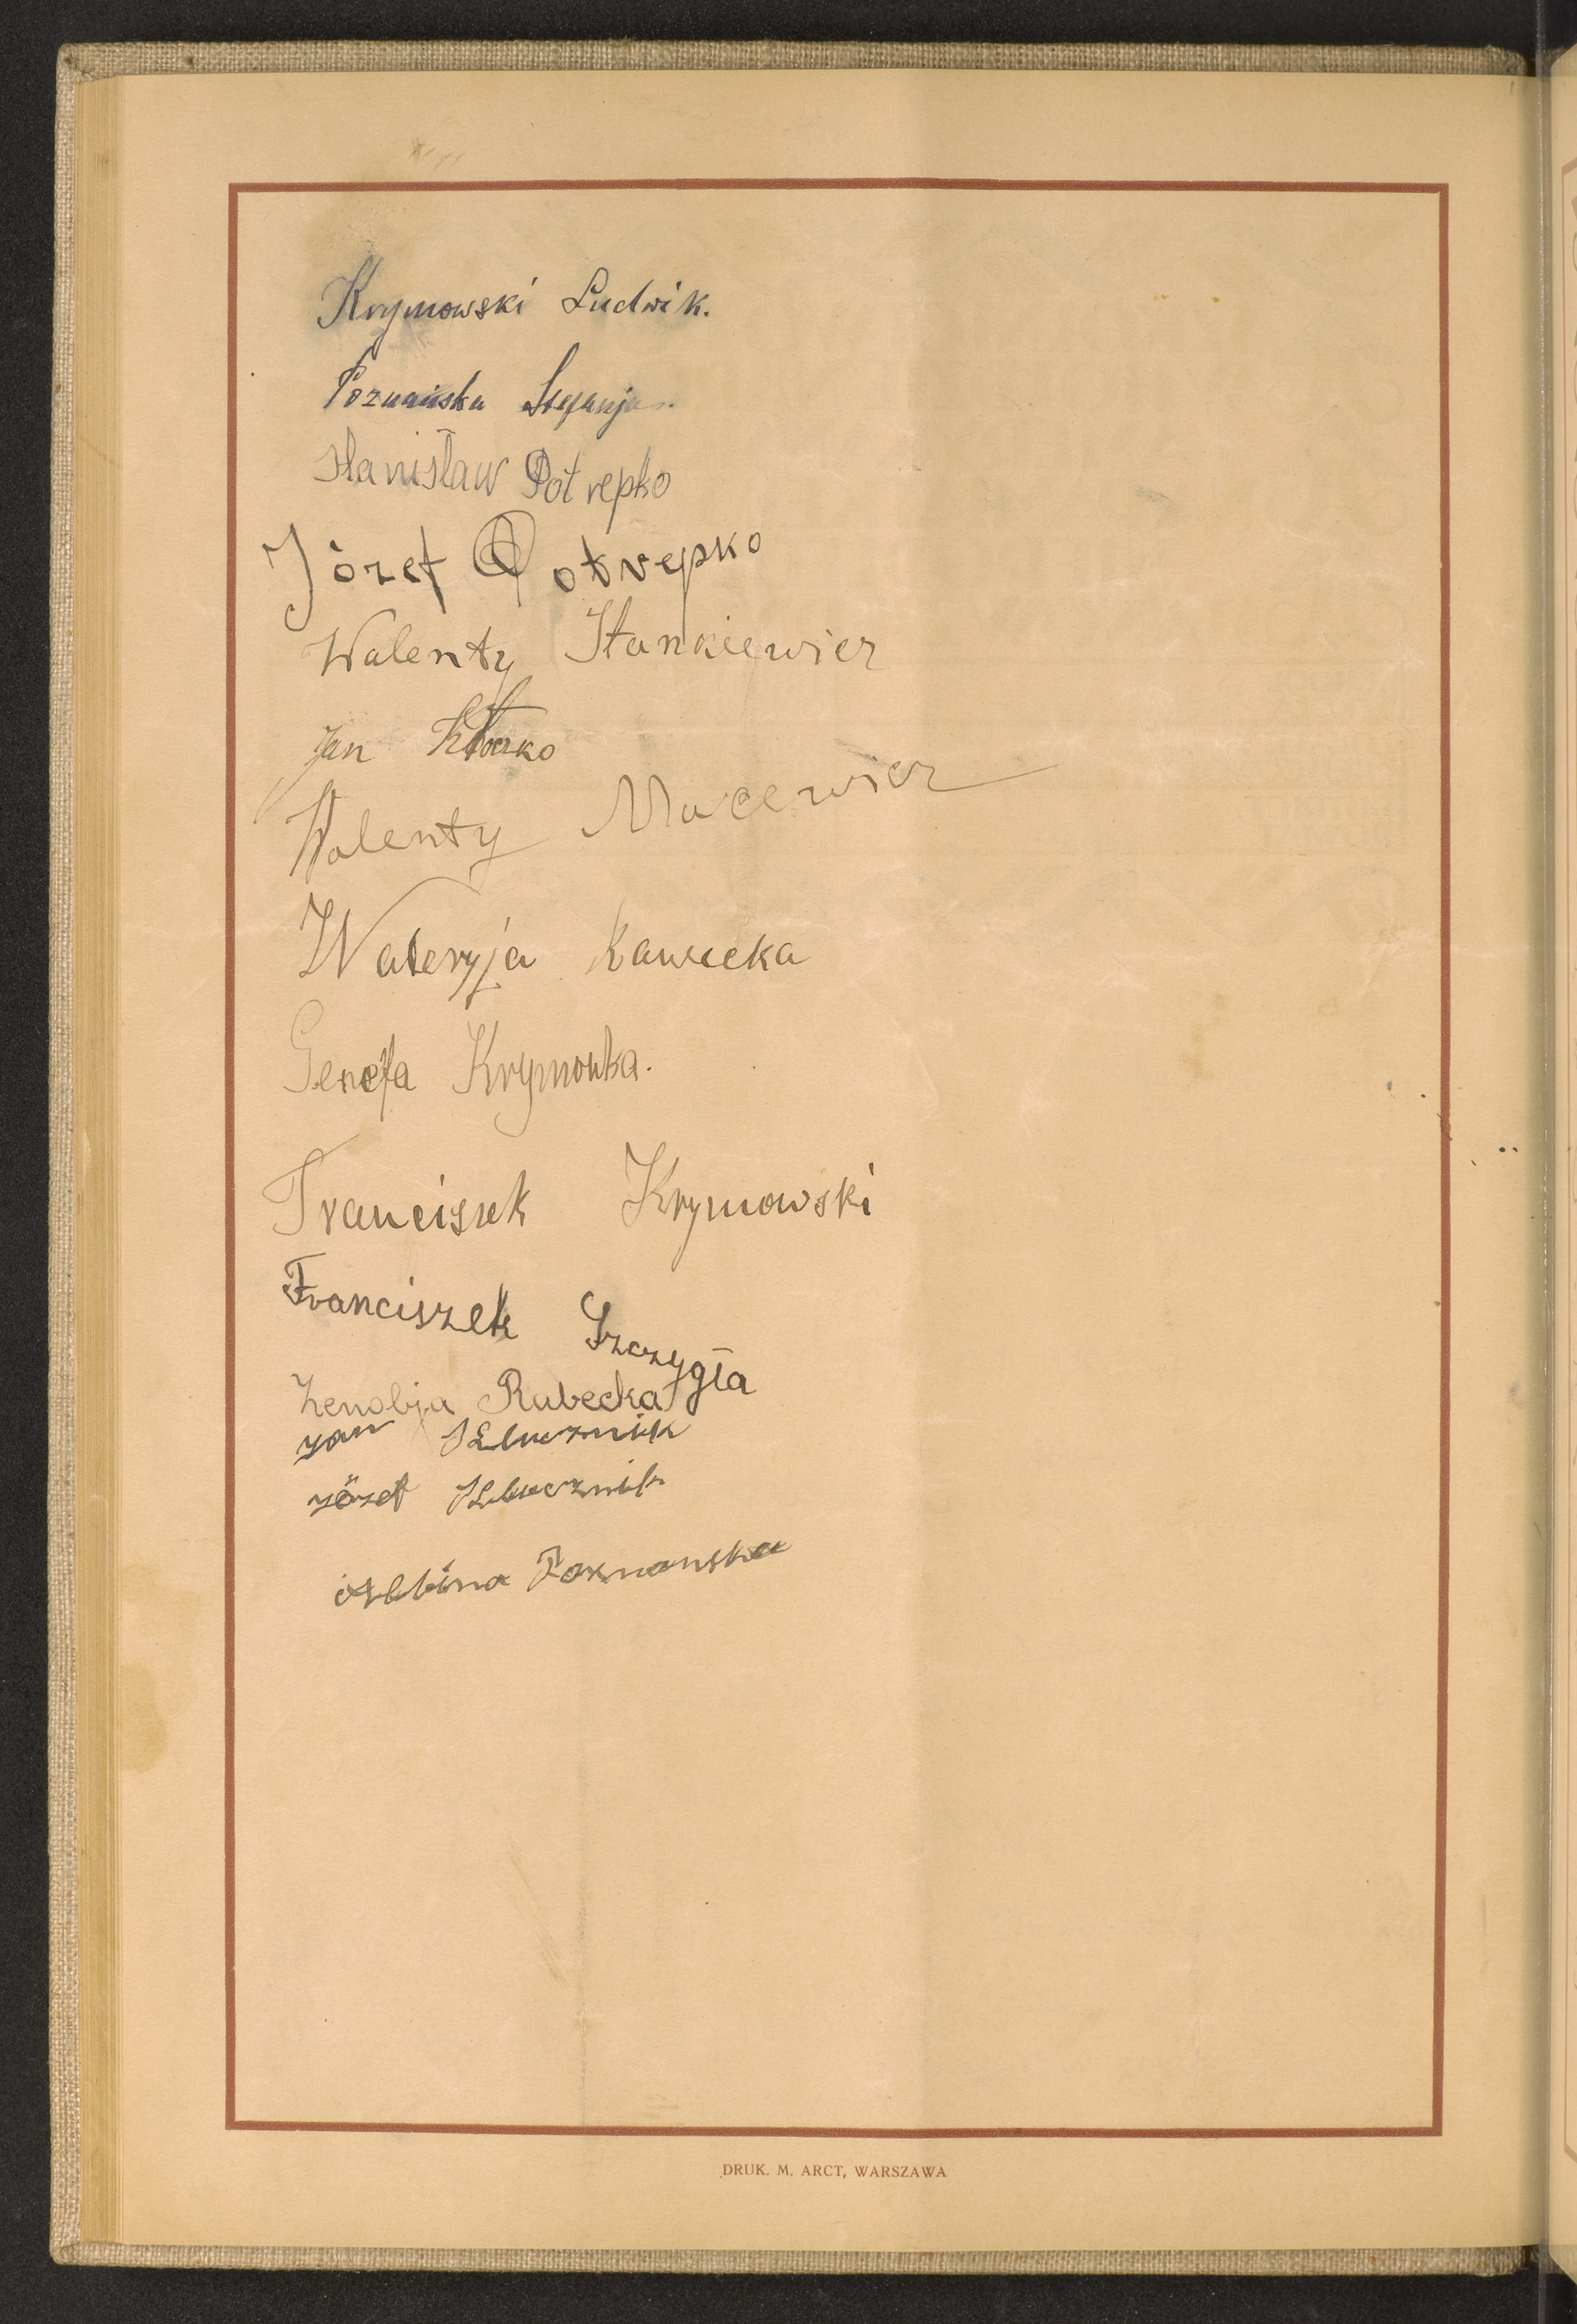 Krymowski Ludwik.
Poznańska Stefanja.
Stanisław Potrepko
Józef Potrepko
Walenty Stankiewicz
Jan
Walenty Macewicz
Waleryja Kawecka
Genefa Krymowka.
Franciszek Krymowski
Franciszek Szczygła
Zenobja Rubecka
Jan
Józef
Albina Poznanska
DRUK. M. ARCT, WARSZAWA